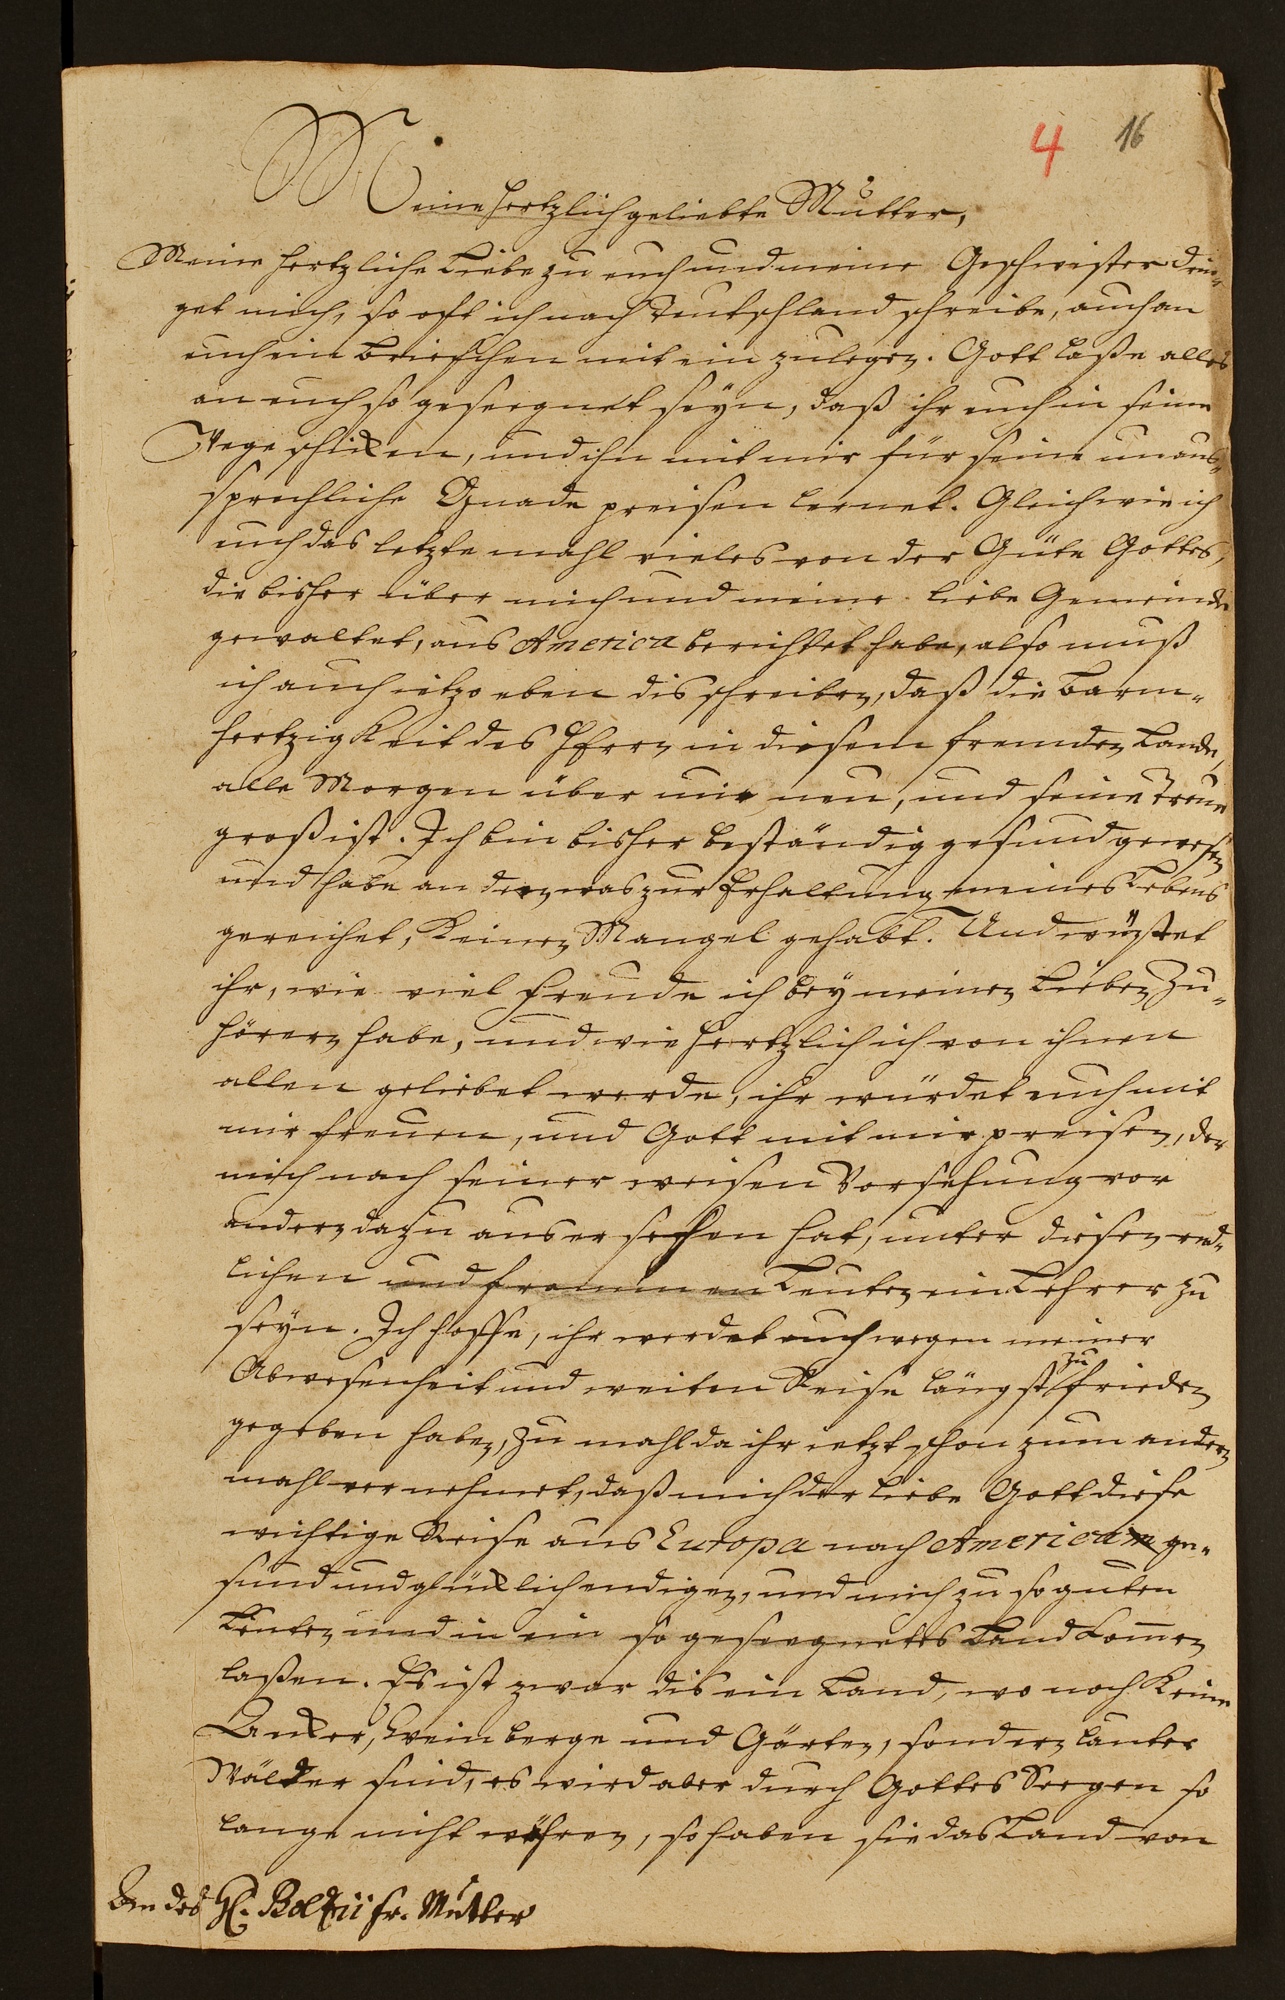 4 16
Meine hertzlich geliebte Mutter,
Meine hertzliche Liebe zu euch und meine Geschwister drin-
get mich, so oft ich nach Teutschland schreibe, auch an
euch ein briefchen mit ein zulegen. Gott laße alles
an euch so geseegnet seyn, daß ihr euch in seine
Wege schicken, und ihn mit mir für seine unaus-
sprechliche Gnade preisen lernet. Gleichwie ich
euch das letzte mahl vieles von der Güte Gottes,
die bisher über mich und meine liebe Gemeinde
gewaltet, aus America berichtet habe, also muß
ich auch ietzo eben dis schreiben, daß die barm-
hertzigkeit des Herrn in diesem fremden Lande,
alle Morgen über mir neu, und seine Treue
groß ist. Ich bin bisher beständig gesund gewesen
und habe an dem, was zur Erhaltung meines Lebens
gereichet, keinen Mangel gehabt. Und wüstet
ihr, wie viel Freude ich bey meinen lieben Zu-
hörern habe, und wie hertzlich ich von ihnen
allen geliebet werde, ihr würdet euch mit
mir freuen, und Gott mit mir preisen, der
mich nach seiner weisen Vorsehung vor
andern dazu ausersehen hat, unter diesen red-
lichen und frommen Leuten ein Lehrer zu
seyn. Ich hoffe, ihr werdet euch wegen meiner
Abwesenheit und weiten Reise längst zu frieden
gegeben haben, zu mahl da ihr ietzt schon zum andern
mahl vernehmet, daß mich der liebe Gott diese
wichtige Reise aus Europa nach America ge-
sund und glücklich endigen, und mich zu so guten
Leuten und in ein so geseegnetes Land kom̄en
laßen. Es ist zwar dis ein Land, wo noch keine
Äcker, Weinberge und Gärten, sondern lauter
Wälder sind, es wird aber durch Gottes Seegen so
lange nicht währen, so haben sie das Land von
An des H. Boltzii fr. Mutter